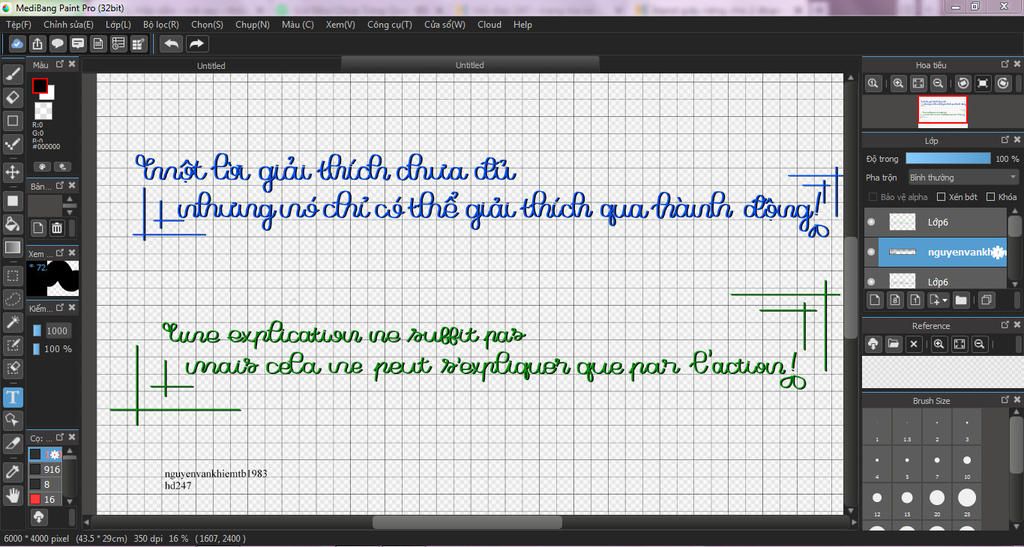 MediBang Paint Pro (32bit)
Tệp(F) Chỉnh sửa(E) Lớp(L) Bộ lọc(R) Chọn(S) Chụp(N) Màu (C) Xem(V) Công cụ(T) Cửa sổ(W) Cloud Help
Untitled Untitled
Màu
R:0
G:0
B:0
#000000
Bản...
Xem ...
* 72.
Kiểm...
1000
100 %
Cọ: ...
916
8
16
một lời giải thích chưa đủ
nhưng nó chỉ có thể giải thích qua hành động!
une explication ne suffit pas
mais cela ne peut s'expliquer que par l'action!
nguyenvankhiemtb1983
hd247
Hoa tiêu
Lớp
Độ trong 100 %
Pha trộn Bình thường
Bảo vệ alpha Xén bớt Khóa
Lớp6
nguyenvankh
Lớp6
Reference
Brush Size
1 1.5 2 3
4 5 7 10
12 15 20 25
6000 * 4000 pixel (43.5 * 29cm) 350 dpi 16 % ( 1607, 2400 )